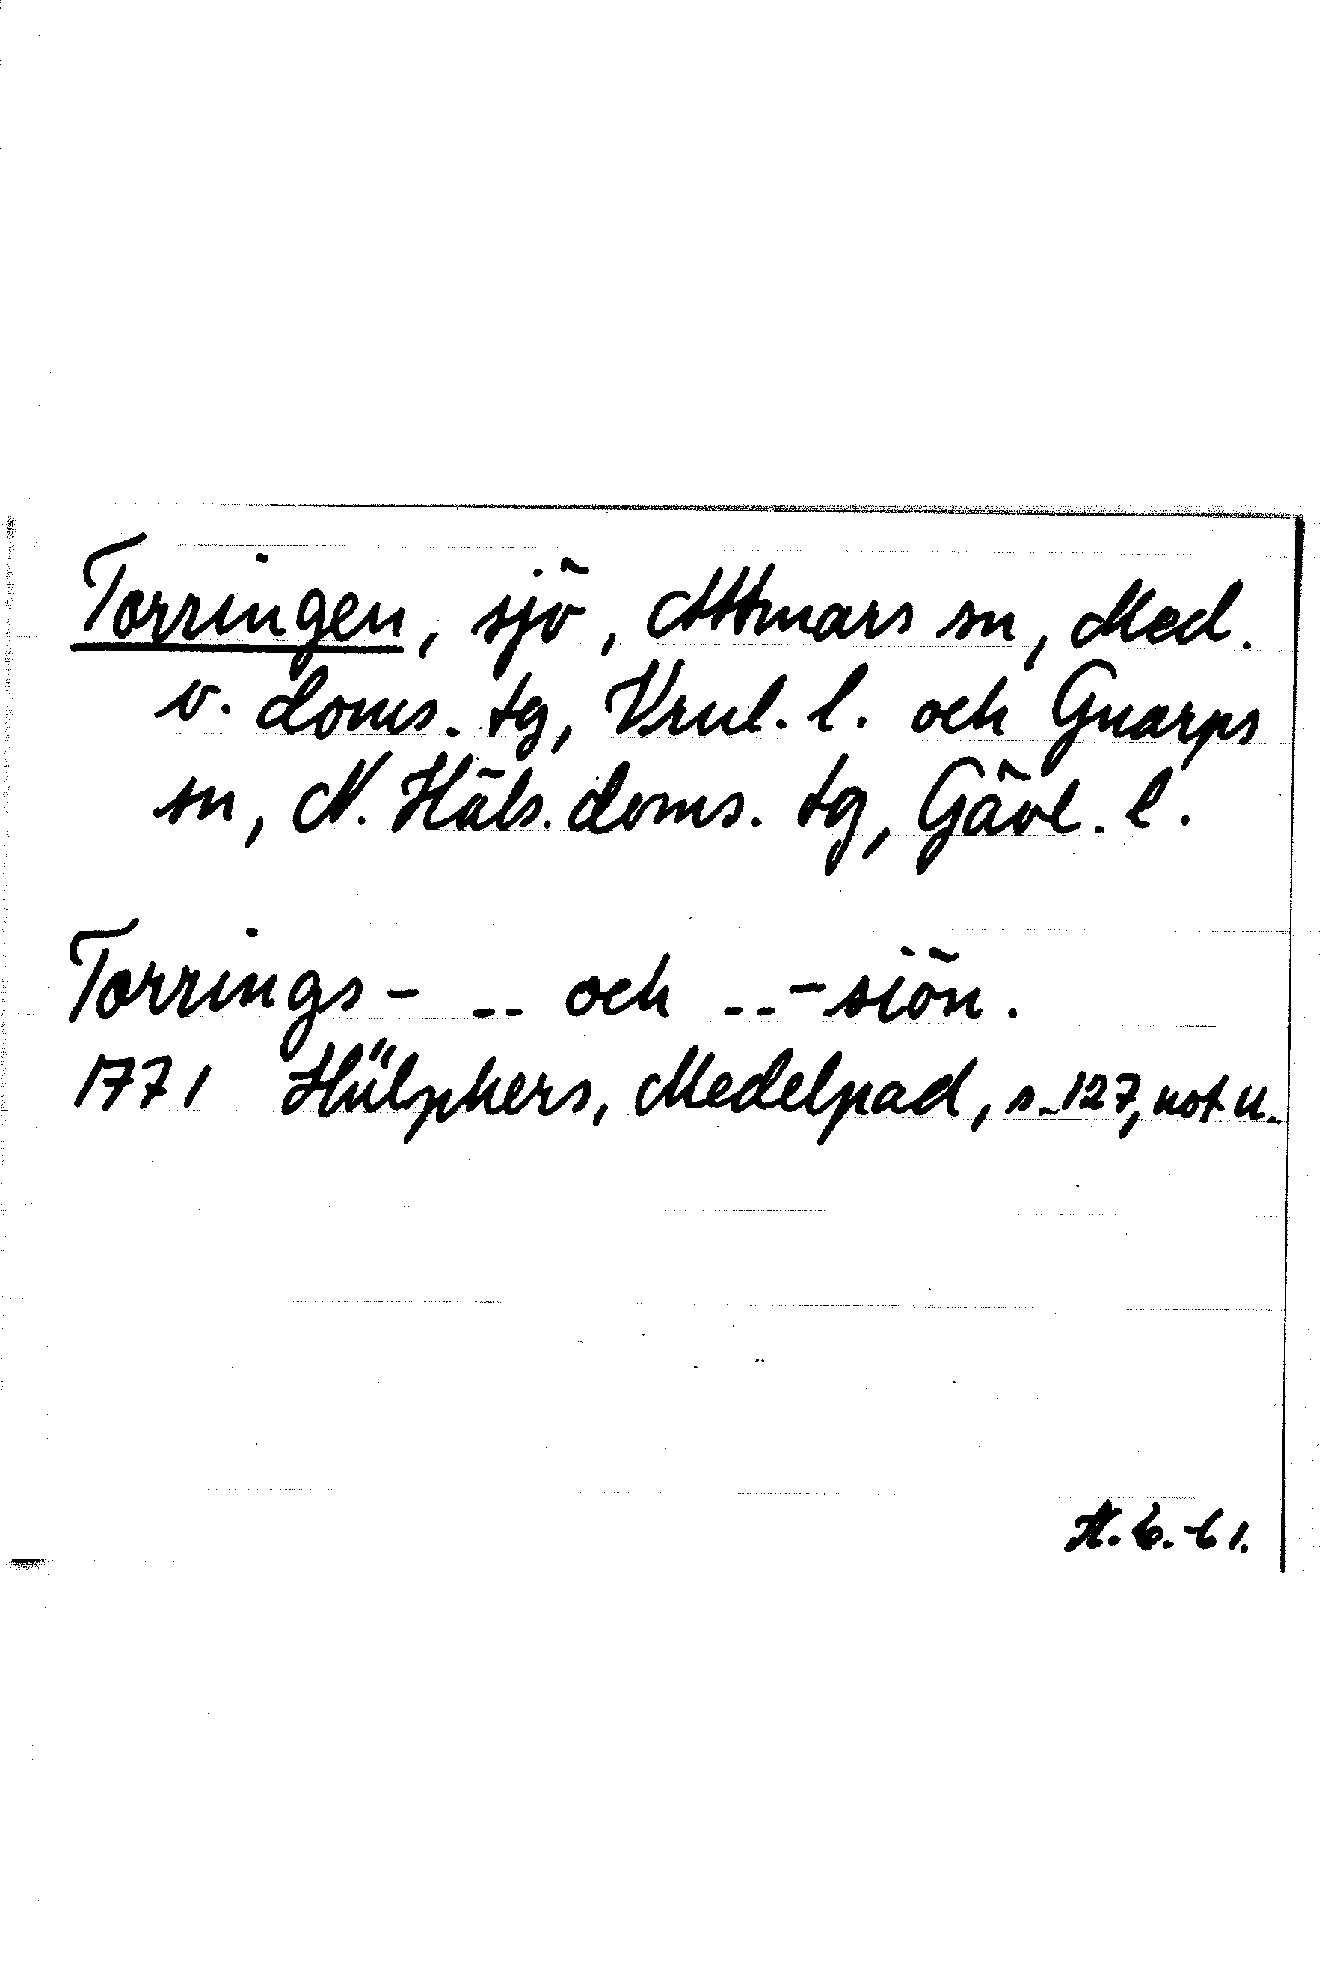 Torringen, sjö, Attmars sn, Med.
v. doms. tg, Vrnl. l. och Gnarps
sn, N. Häls. doms. tg, Gävl. l.
Torrings- -- och -- -siön.
1771 Hülphers, Medelpad, s. 127, not u.